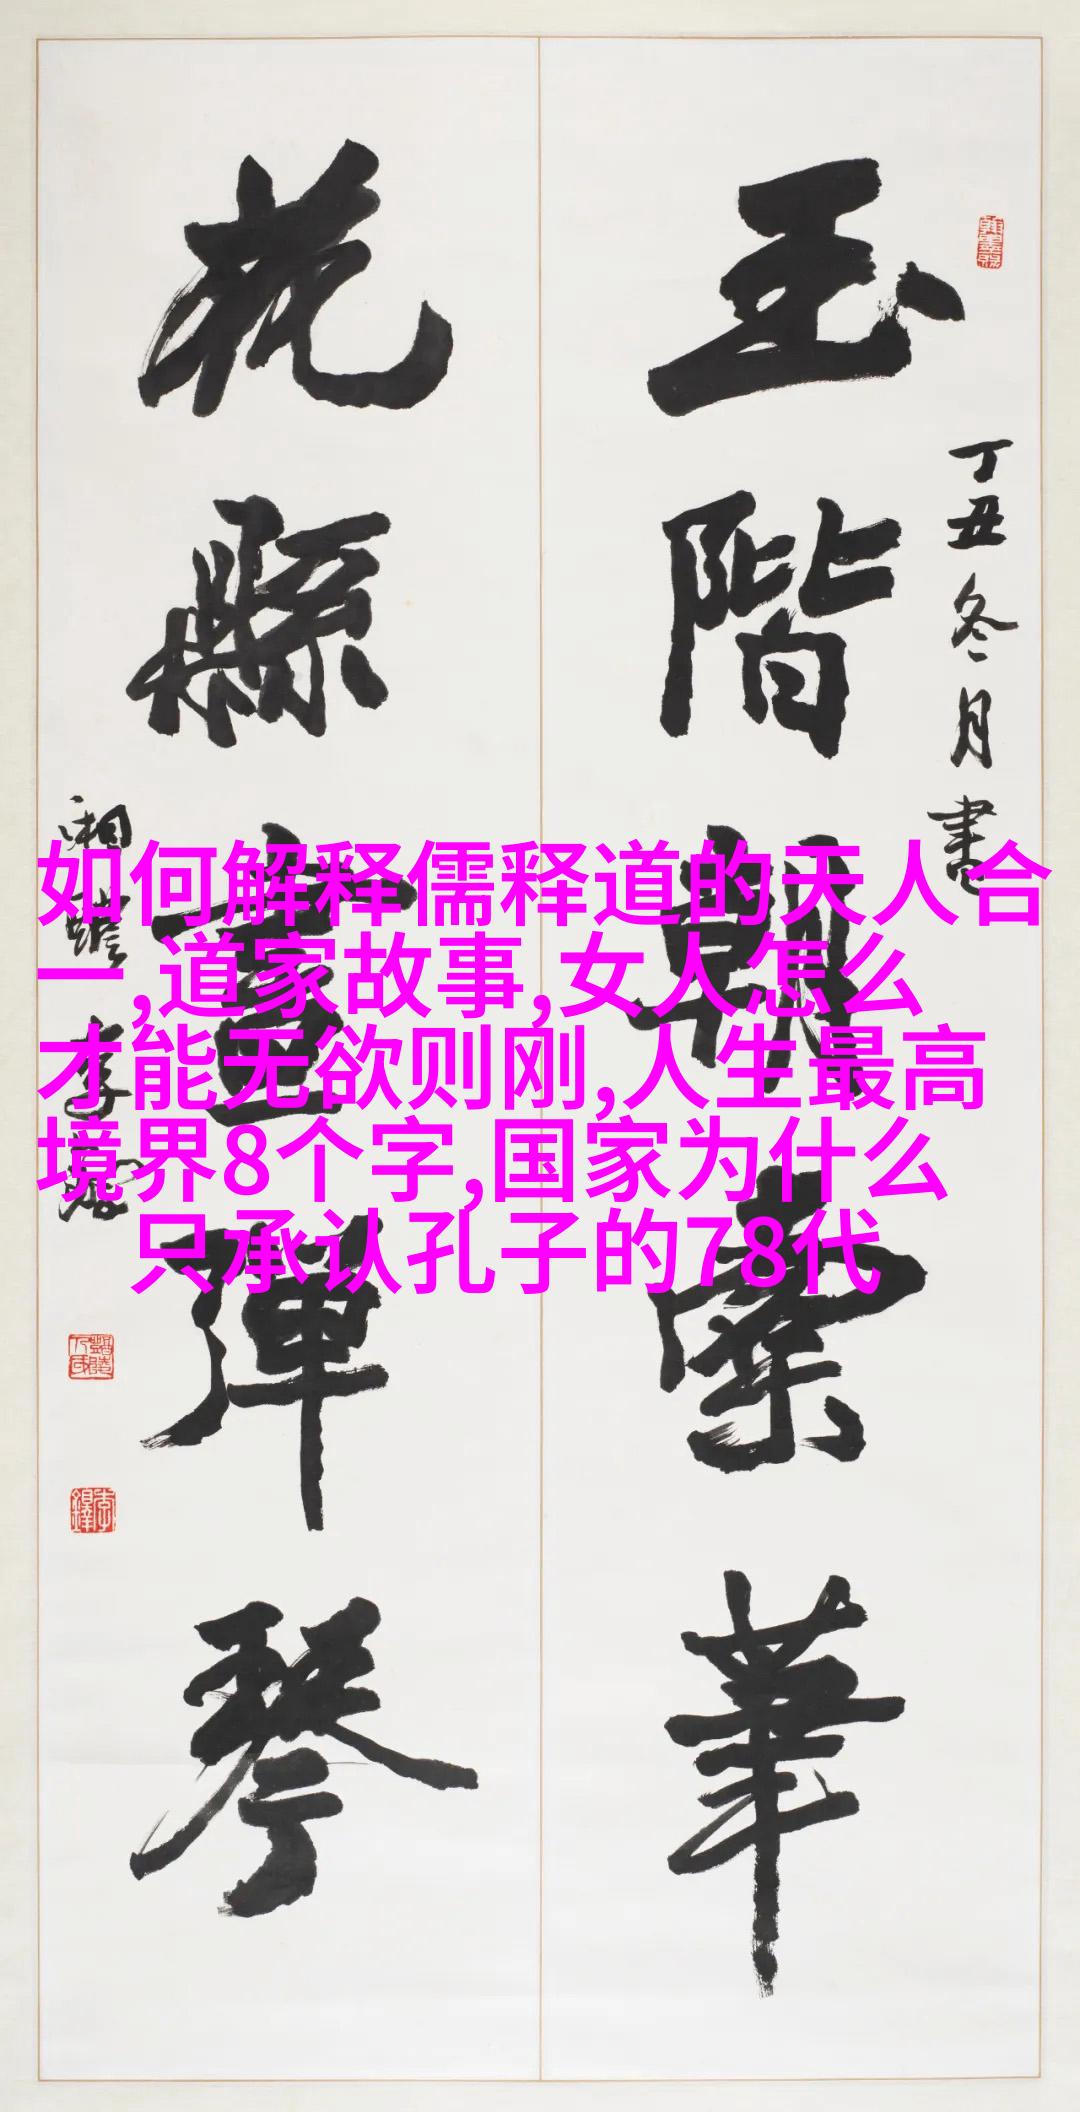 丁丑冬月書
玉階朝
花縣晝彈琴
湘
李鐸
如何解释儒释道的天人合
一,道家故事,女人怎么
才能无欲则刚,人生最高
境界8个字,国家为什么
只承认孔子的78代